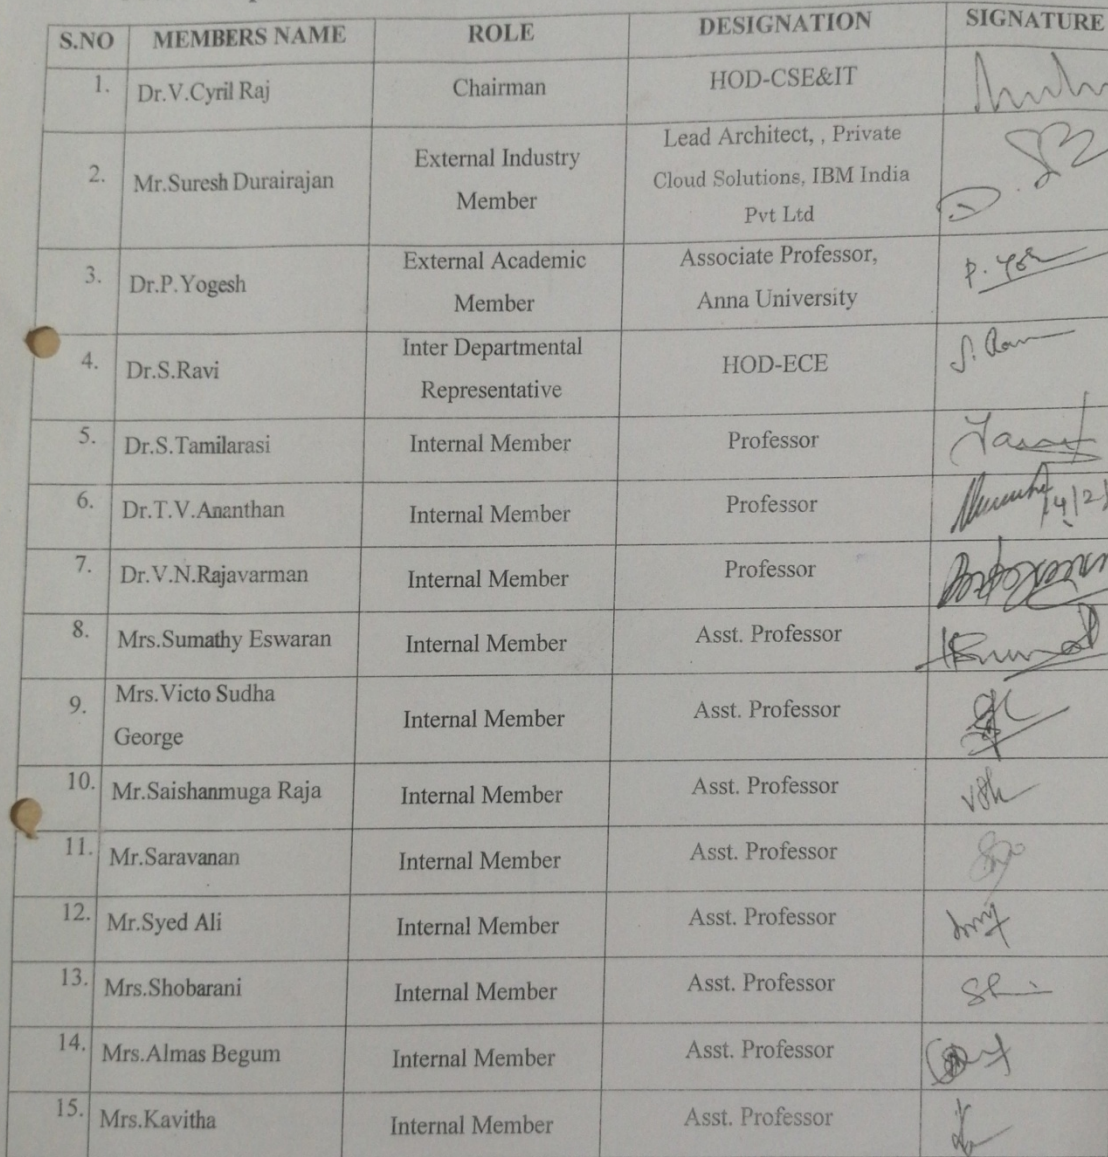 S.NO MEMBERS NAME ROLE DESIGNATION SIGNATURE
1. Dr.V.Cyril Raj Chairman HOD-CSE&IT
2. Mr.Suresh Durairajan External Industry Member Lead Architect, , Private Cloud Solutions, IBM India Pvt Ltd
3. Dr.P.Yogesh External Academic Member Associate Professor, Anna University
4. Dr.S.Ravi Inter Departmental Representative HOD-ECE
5. Dr.S.Tamilarasi Internal Member Professor
6. Dr.T.V.Ananthan Internal Member Professor
7. Dr.V.N.Rajavarman Internal Member Professor
8. Mrs.Sumathy Eswaran Internal Member Asst. Professor
9. Mrs.Victo Sudha George Internal Member Asst. Professor
10. Mr.Saishanmuga Raja Internal Member Asst. Professor
11. Mr.Saravanan Internal Member Asst. Professor
12. Mr.Syed Ali Internal Member Asst. Professor
13. Mrs.Shobarani Internal Member Asst. Professor
14. Mrs.Almas Begum Internal Member Asst. Professor
15. Mrs.Kavitha Internal Member Asst. Professor